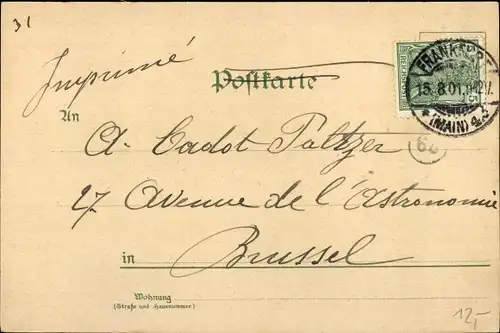 31
Imprimé
Postkarte
FRANKFURT
15.8.01.
* (MAIN) 4.
An
A. Cadot Paltzer
27 Avenue de l'Astronomie
in Brussel
Wohnung
(Straße und Hausnummer)
12,-